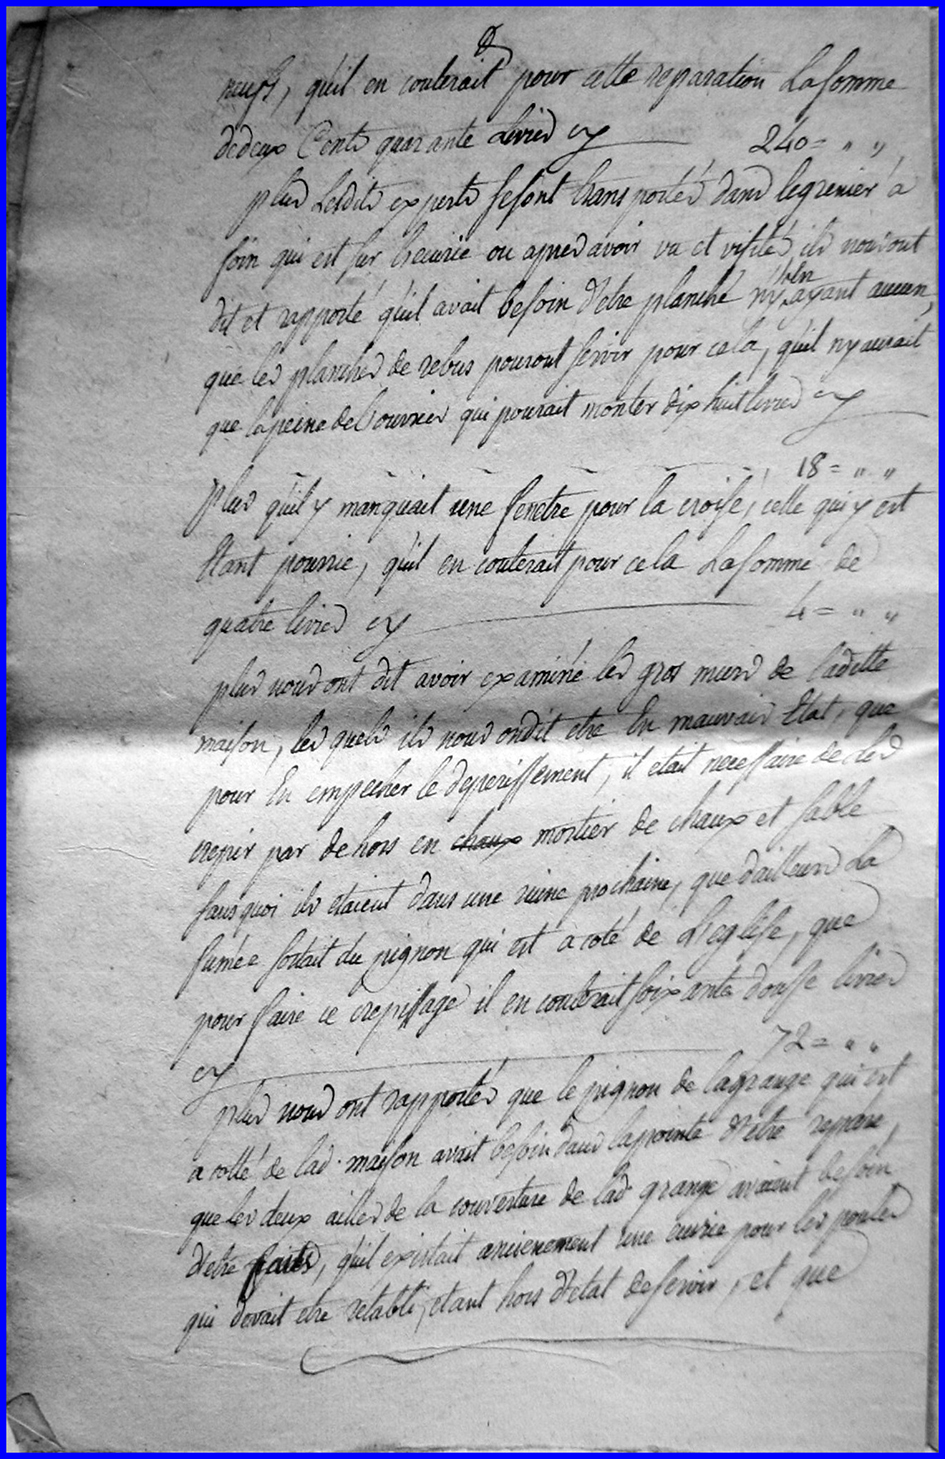 neufs, qu'il en couterait pour cette reparation La somme
de deux Cents quarante Livres cy 240 = " "
plus Lesdits experts se sont transportés dans le grenier a
foin qui est sur l'ecurie ou apres avoir vu et visité, ils nous ont
dit et rapporté qu'il avait besoin d'etre planché n'y ayant aucun,
que les planches de rebus pouront servir pour cela, qu'il n'y aurait
que la peine de l'ouvrier qui pourait monter dix huit livres cy
18 = " "
Plus qu'il y manquait une fenetre pour la croisé, celle qui y est
Etant pourrie, qu'il en couterait pour cela La somme de
quatre livres cy 4 = " "
plus nous ont dit avoir examiné les gros murs de laditte
maison, les quels ils nous ondit etre En mauvais Etat, que
pour En empecher le deperissement, il etait necessaire de les
crepir par de hors en chaux mortier de chaux et sable
sans quoi ils etaient dans une ruine prochaine, que d'ailleurs La
fumée sortait du pignon qui est a coté de L'eglise, que
pour faire ce crepissage il en couterait soixante douse livres
cy 72 = " "
plus nous ont rapportés que le pignon de la grange qui est
a cotté de lad. maison avait besoin dans la pointe d'etre reparé,
que les deux ailles de la couverture de lad grange avaient besoin
d'etre faites, qu'il existait anciennement une ecurie pour les poules
qui devait etre retabli, etant hors d'etat de servir, et que